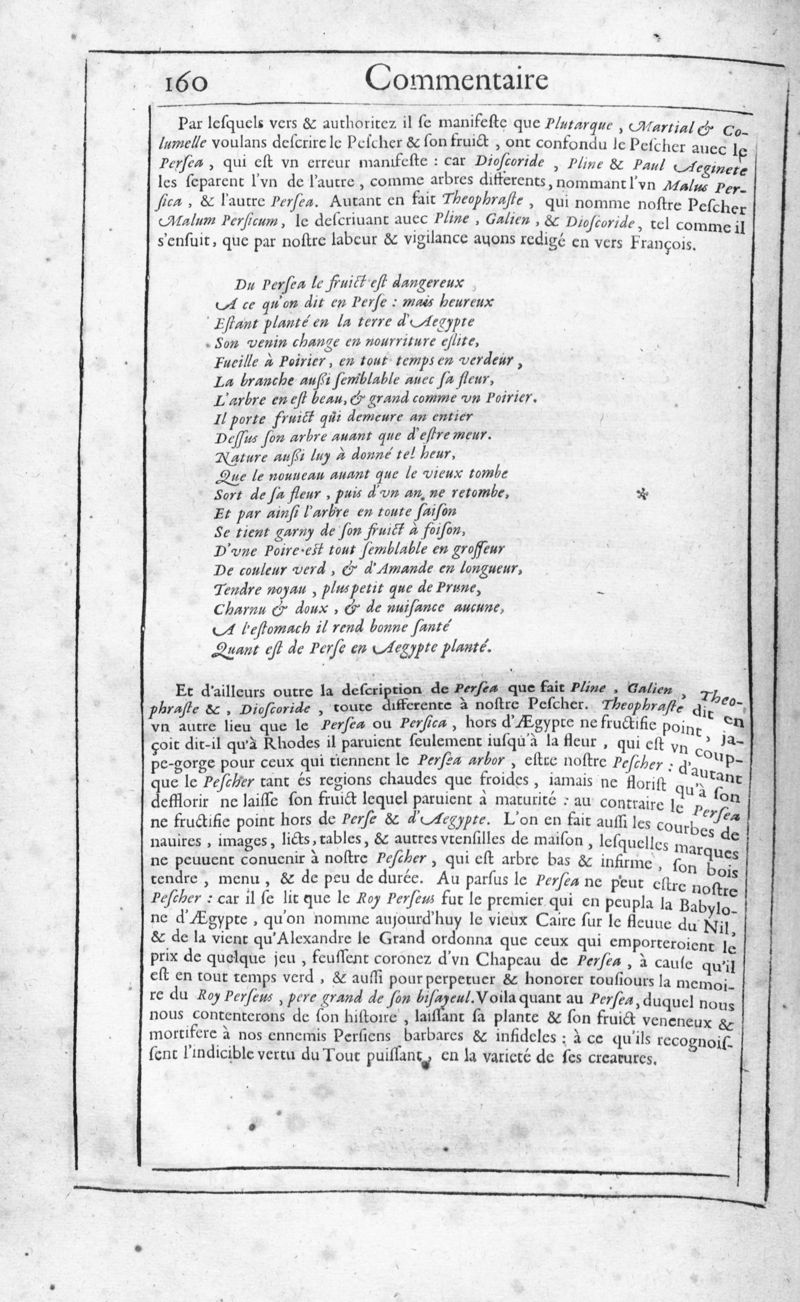 160 Commentaire
Par leſquels vers & authoritez il ſe manifeſte que Plutarque , Martial & Co-
lumelle voulans deſcrire le Peſcher & ſon fruict , ont confondu le Peſcher auec le
Perſea , qui eſt vn erreur manifeſte : car Dioſcoride , Pline & Paul Aeginete
les ſeparent l'vn de l'autre , comme arbres differents, nommant l'vn Malus Per-
ſica , & l'autre Perſea. Autant en fait Theophraſte , qui nomme noſtre Peſcher
Malum Perſicum, le deſcriuant auec Pline , Galien , & Dioſcoride, tel comme il
s'enſuit, que par noſtre labeur & vigilance auons redigé en vers François.
Du Perſea le fruict eſt dangereux
A ce qu'on dit en Perſe : mais heureux
Eſtant planté en la terre d'Aegypte
Son venin change en nourriture eſlite,
Fueille à Poirier, en tout temps en verdeur ,
La branche auſſi ſemblable auec ſa fleur,
L'arbre en eſt beau, & grand comme vn Poirier.
Il porte fruict qui demeure an entier
Deſſus ſon arbre auant que d'eſtre meur.
Nature auſſi luy à donné tel heur,
Que le nouueau auant que le vieux tombe
Sort de ſa fleur , puis d'vn an ne retombe,
Et par ainſi l'arbre en toute ſaiſon
Se tient garny de ſon fruict à foiſon,
D'vne Poire eſt tout ſemblable en groſſeur
De couleur verd , & d'Amande en longueur,
Tendre noyau , plus petit que de Prune,
Charnu & doux , & de nuiſance aucune,
A l'eſtomach il rend bonne ſanté
Quant eſt de Perſe en Aegypte planté.
Et d'ailleurs outre la deſcription de Perſea que fait Pline , Galien , Theo-
phraſte & , Dioſcoride , toute differente à noſtre Peſcher. Theophraſte dit en
vn autre lieu que le Perſea ou Perſica , hors d'Ægypte ne fructifie point , ja-
çoit dit-il qu'à Rhodes il paruient ſeulement iuſqu'à la fleur , qui eſt vn coup-
pe-gorge pour ceux qui tiennent le Perſea arbor , eſtre noſtre Peſcher : d'autant
que le Peſcher tant és regions chaudes que froides , iamais ne floriſt qu'à ſon
defflorir ne laiſſe ſon fruict lequel paruient à maturité : au contraire le Perſea
ne fructifie point hors de Perſe & d'Aegypte. L'on en fait auſſi les courbes de
nauires , images , licts, tables, & autres vtenſilles de maiſon , leſquelles marques
ne peuuent conuenir à noſtre Peſcher , qui eſt arbre bas & infirme , ſon bois
tendre , menu , & de peu de durée. Au parſus le Perſea ne peut eſtre noſtre
Peſcher : car il ſe lit que le Roy Perſeus fut le premier qui en peupla la Babylo-
ne d'Ægypte , qu'on nomme aujourd'huy le vieux Caire ſur le fleuue du Nil,
& de la vient qu'Alexandre le Grand ordonna que ceux qui emporteroient le
prix de quelque jeu , feuſſent coronez d'vn Chapeau de Perſea , à cauſe qu'il
eſt en tout temps verd , & auſſi pour perpetuer & honorer touſiours la memoi-
re du Roy Perſeus , pere grand de ſon biſayeul. Voila quant au Perſea, duquel nous
nous contenterons de ſon hiſtoire , laiſſant ſa plante & ſon fruict veneneux &
mortifere à nos ennemis Perſiens barbares & infideles ; à ce qu'ils recognoiſ-
ſent l'indicible vertu du Tout puiſſant, en la varieté de ſes creatures.